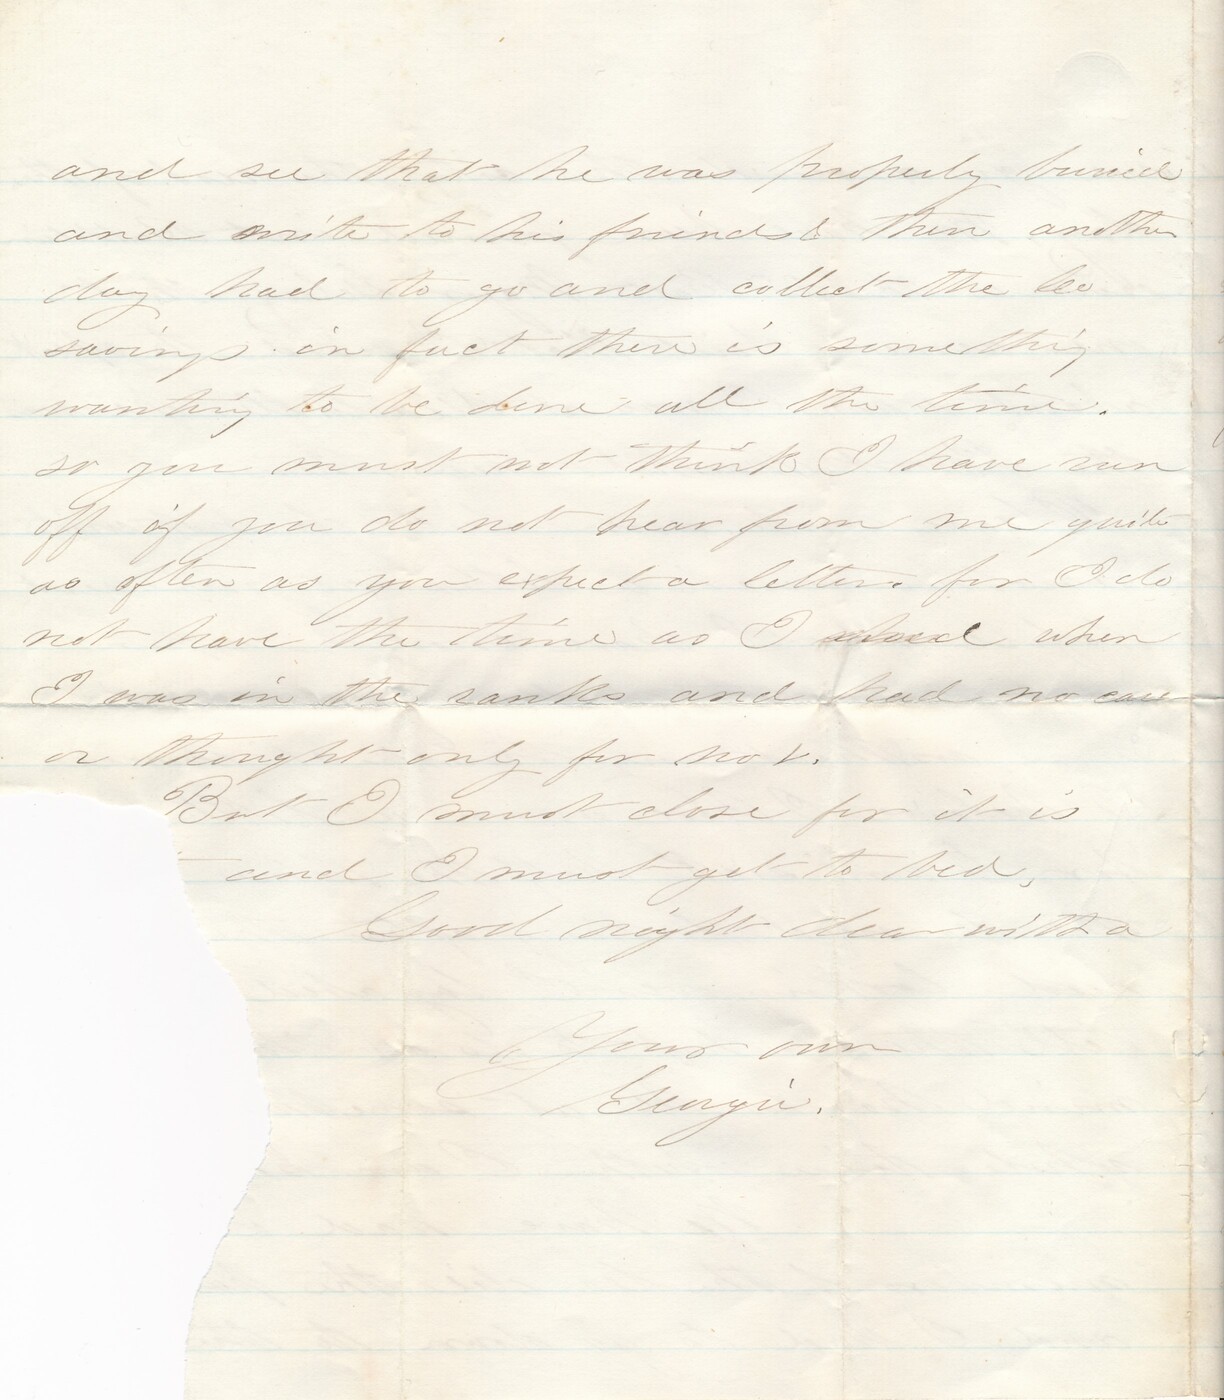 and see that he was properly buried
and write to his friends & then another
day had to go and collect the Co
savings. in fact there is something
wanting to be done all the time.
so you must not think I have run
off if you do not hear from me quite
as often as you expect a letter. for I do
not have the time as I when
I was in the ranks and had no care
or thought only for no 1.
But I must close for it is
and I must get to bed,
Good night dear with a
Your own
Georgie.